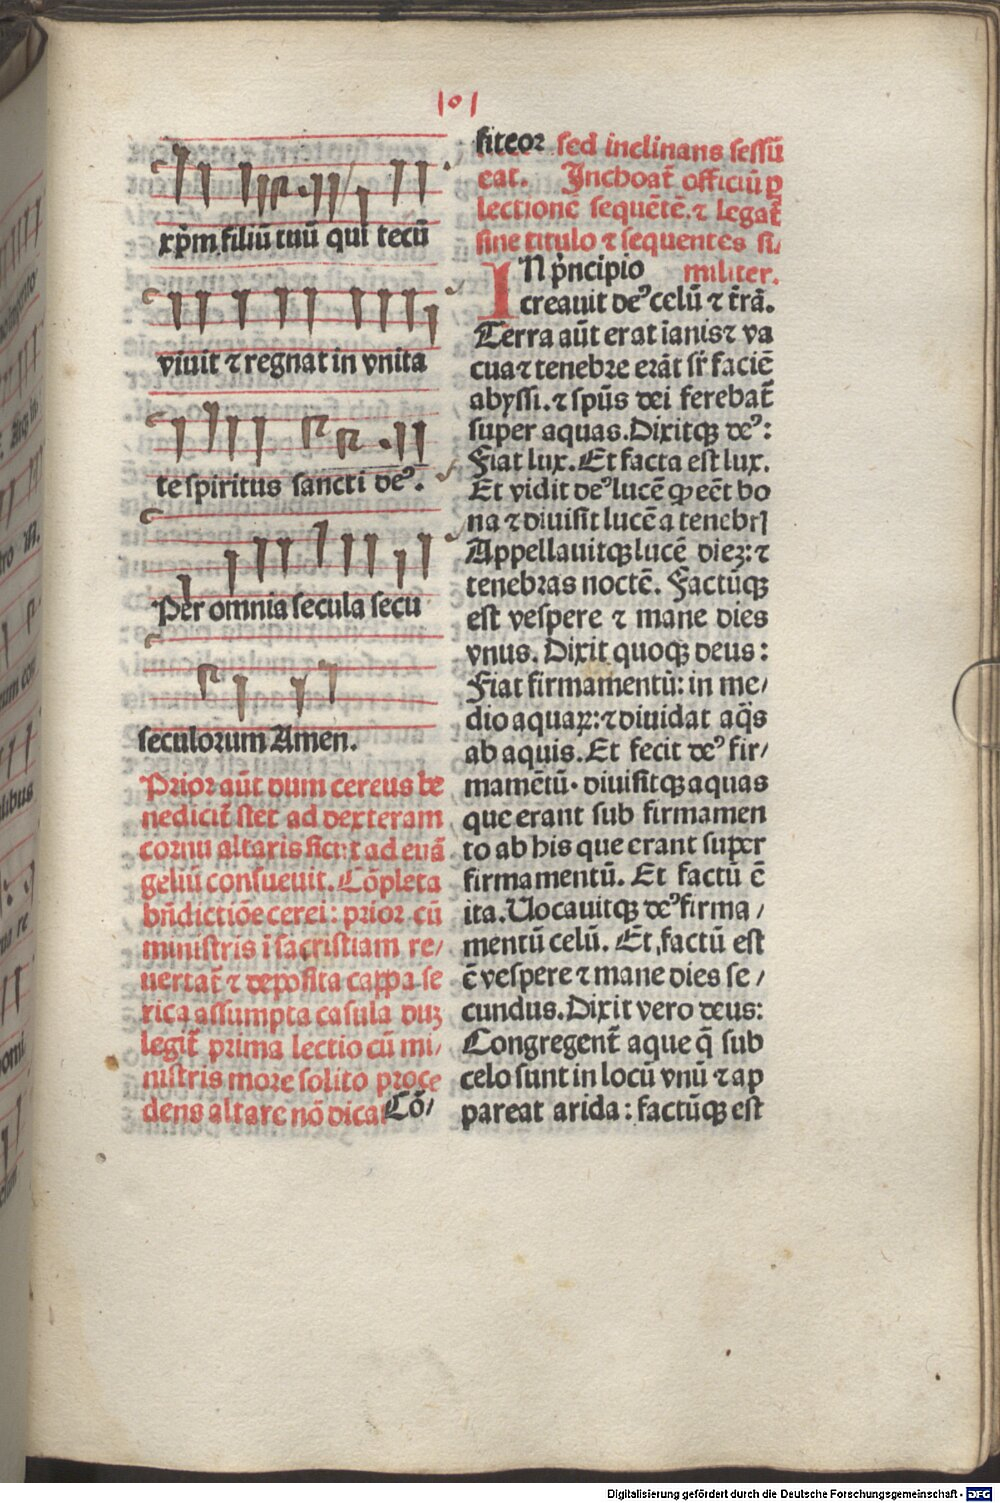 101
xp̄m filiū tuū qui tecū
viuit ⁊ regnat in vnita
te spiritus sancti deꝰ.
Per omnia secula secu
seculorum Amen.
Prior aūt dum cereus be
nedicit᷑ stet ad dexteram
cornu altaris sicut ad euā
geliū consueuit. Cōpleta
bn̄dictiōe cerei: prior cū
ministris ī sacristiam re/
uertat᷑ ⁊ deposita cappa se
rica assumpta casula duꝫ
legit᷑ prima lectio cū mi/
nistris more solito proce
dens altare nō dicat Cō/
fiteor sed inclinans sessū
eat. Inchoat᷑ officiū ꝑ
lectionē sequētē. ⁊ legat᷑
sine titulo ⁊ sequentes si/
militer.
IN pͥncipio
creauit deꝰ celū ⁊ t̄rā.
Terra aūt erat īanis ⁊ va
cua ⁊ tenebre erāt sr̄ faciē
abyssi. ⁊ spūs dei ferebat᷑
super aquas. Dixitqꝫ deꝰ:
Fiat lux. Et facta est lux.
Et vidit deꝰ lucē ꝙ eēt bo
na ⁊ diuisit lucē a tenebrꝭ
Appellauitqꝫ lucē dieꝫ: ⁊
tenebras noctē. Factūqꝫ
est vespere ⁊ mane dies
vnus. Dixit quoqꝫ deus:
Fiat firmamentū: in me/
dio aquaꝝ: ⁊ diuidat aq̄s
ab aquis. Et fecit deꝰ fir/
mamētū. diuisitqꝫ aquas
que erant sub firmamen
to ab his que erant super
firmamentū. Et factū ē
ita. Uocauitqꝫ deꝰ firma/
mentū celū. Et factū est
ē vespere ⁊ mane dies se/
cundus. Dixit vero deus:
Congregent᷑ aque q̄ sub
celo sunt in locū vnū ⁊ ap
pareat arida: factūqꝫ est
Digitalisierung gefördert durch die Deutsche Forschungsgemeinschaft - DFG